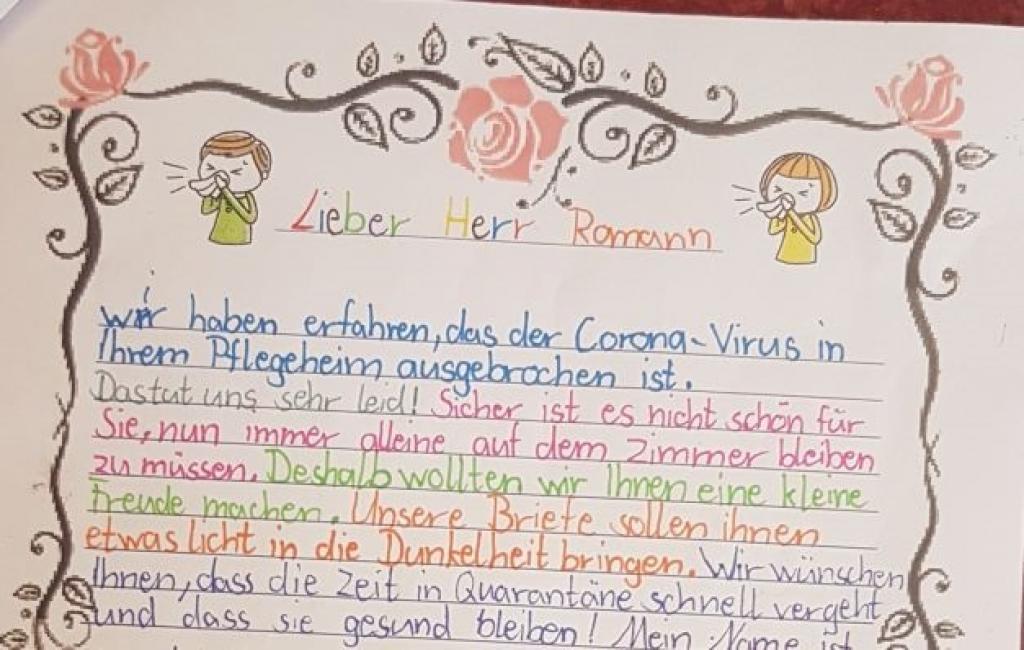 Lieber Herr Romann
wir haben erfahren, das der Corona-Virus in
Ihrem Pflegeheim ausgebrochen ist.
Das tut uns sehr leid! Sicher ist es nicht schön für
Sie, nun immer alleine auf dem Zimmer bleiben
zu müssen. Deshalb wollten wir Ihnen eine kleine
Freude machen. Unsere Briefe sollen ihnen
etwas licht in die Dunkelheit bringen. Wir wünschen
Ihnen, dass die Zeit in Quarantäne schnell vergeht
und dass sie gesund bleiben! Mein Name ist